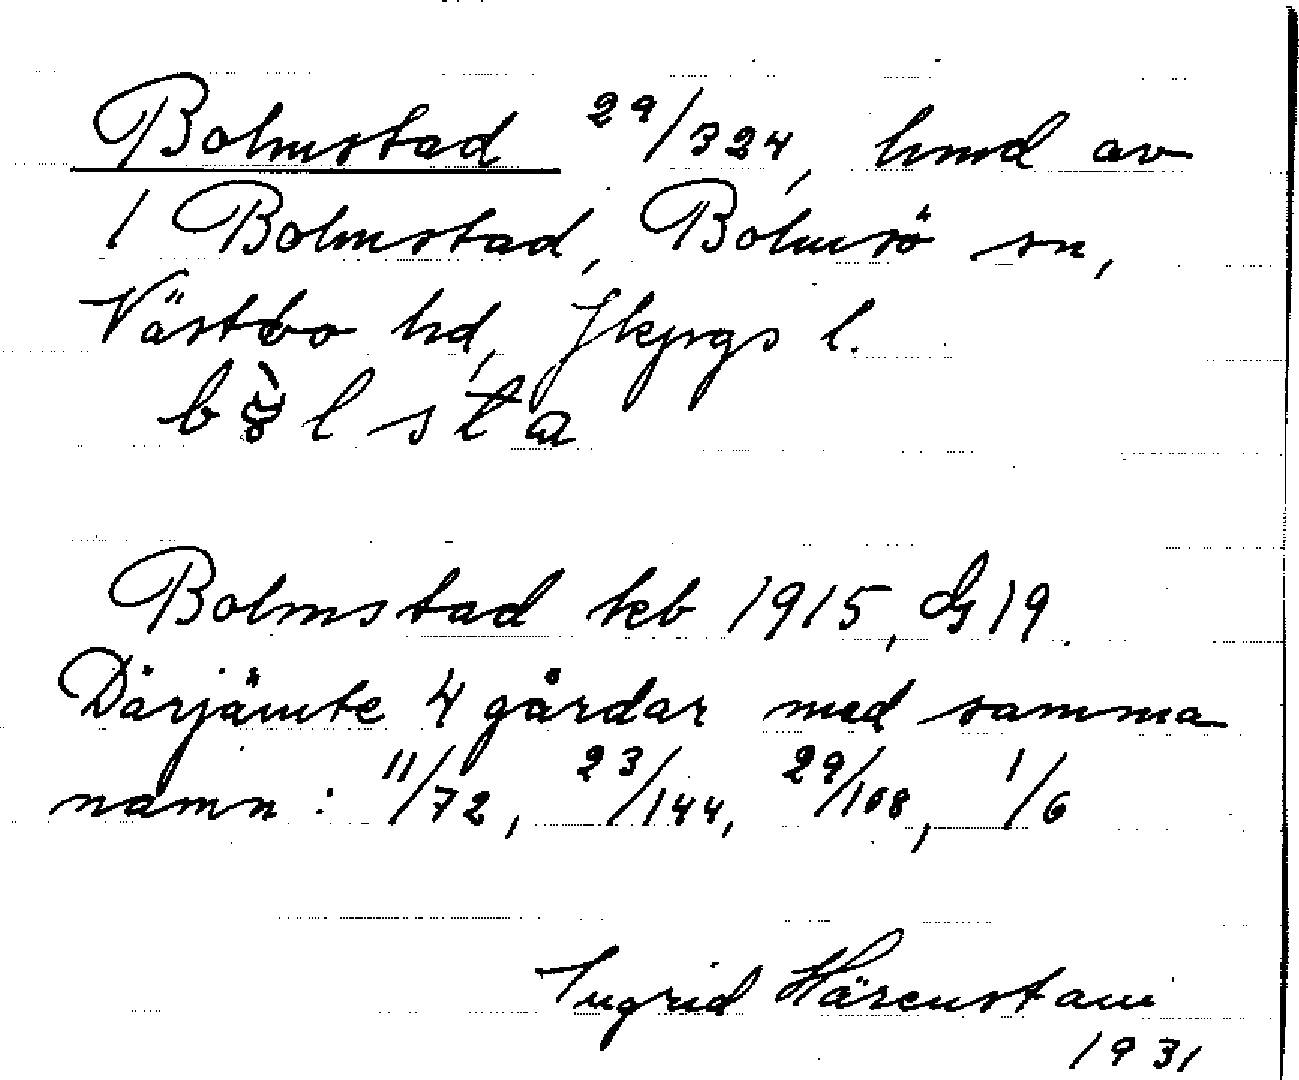 Bolmstad 29/324, hmd av
1 Bolmstad, Bolmsö sn,
Västbo hd, Jkpgs l.
b l s t a
Bolmstad keb 1915, G 19.
Därjämte 4 gårdar med samma
namn: 11/72, 23/144, 29/108, 1/6
Ingrid Härenstam
1931